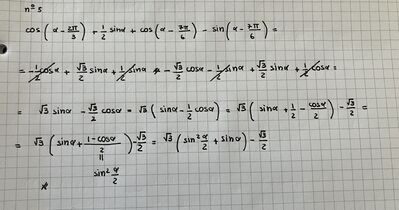 n° 5
cos(α - 2π/3) + 1/2 sinα + cos(α - 7π/6) - sin(α - 7π/6) =
= -1/2 cosα + √3/2 sinα + 1/2 sinα - √3/2 cosα - 1/2 sinα + √3/2 sinα + 1/2 cosα =
= √3 sinα - √3/2 cosα = √3 (sinα - 1/2 cosα) = √3 (sinα + 1/2 - cosα/2) - √3/2 =
= √3 (sinα + (1-cosα)/2) - √3/2 = √3 (sin² α/2 + sinα) - √3/2
||
sin² α/2